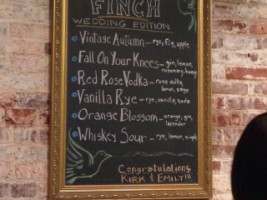 FINCH
WEDDING EDITION
Vintage Autumn - rye, fig, apple
Fall On Your Knees - gin, lemon,
rosemary, honey
Red Rose Vodka - rose milk,
lemon, sage
Vanilla Rye - rye, vanilla, soda
Orange Blossom - orange, gin,
lavender
Whiskey Sour - rye, lemon,
Congratulations
KIRK & EMILY!!!